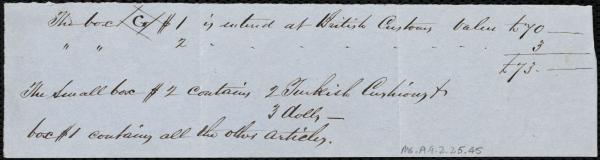 The box Cy #1 is enterd at British Customs value £70 —
" " 2 " " " " " " 3
£73 —
The small box #2 contains 2 Turkish Cushions &
3 dolls —
box #1 contains all the other articles.
Ms.A.9.2.25.45